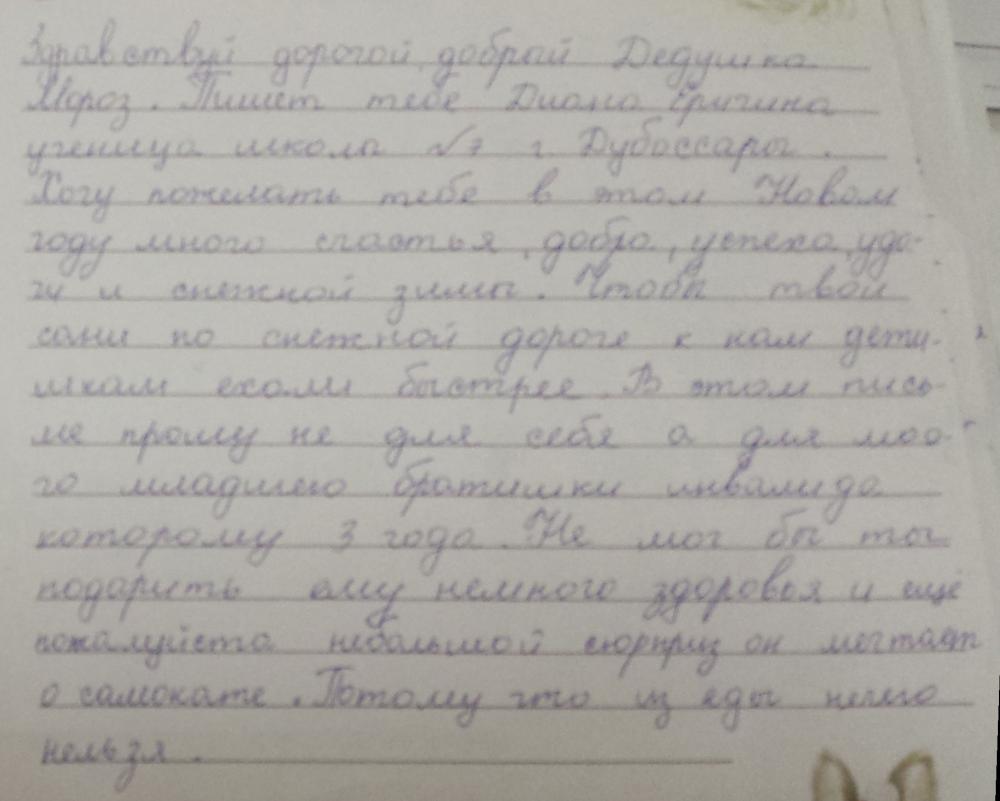 Здравствуй дорогой, добрый Дедушка
Мороз. Пишет тебе Диана Еричина
ученица школы №7 г. Дубоссары.
Хочу пожелать тебе в этом Новом
году много счастья, добра, успеха, уда-
чи и снежной зимы. Чтобы твои
сани по снежной дороге к нам дети-
шкам ехали быстрее. В этом пись-
ме прошу не для себя а для моо-
го младшего братишки инвалида
которому 3 года. Не мог бы ты
подарить ему немного здоровья и ещё
пожалуйста небольшой сюрприз он мечтает
о самокате. Потому что из еды нечего
нельзя.